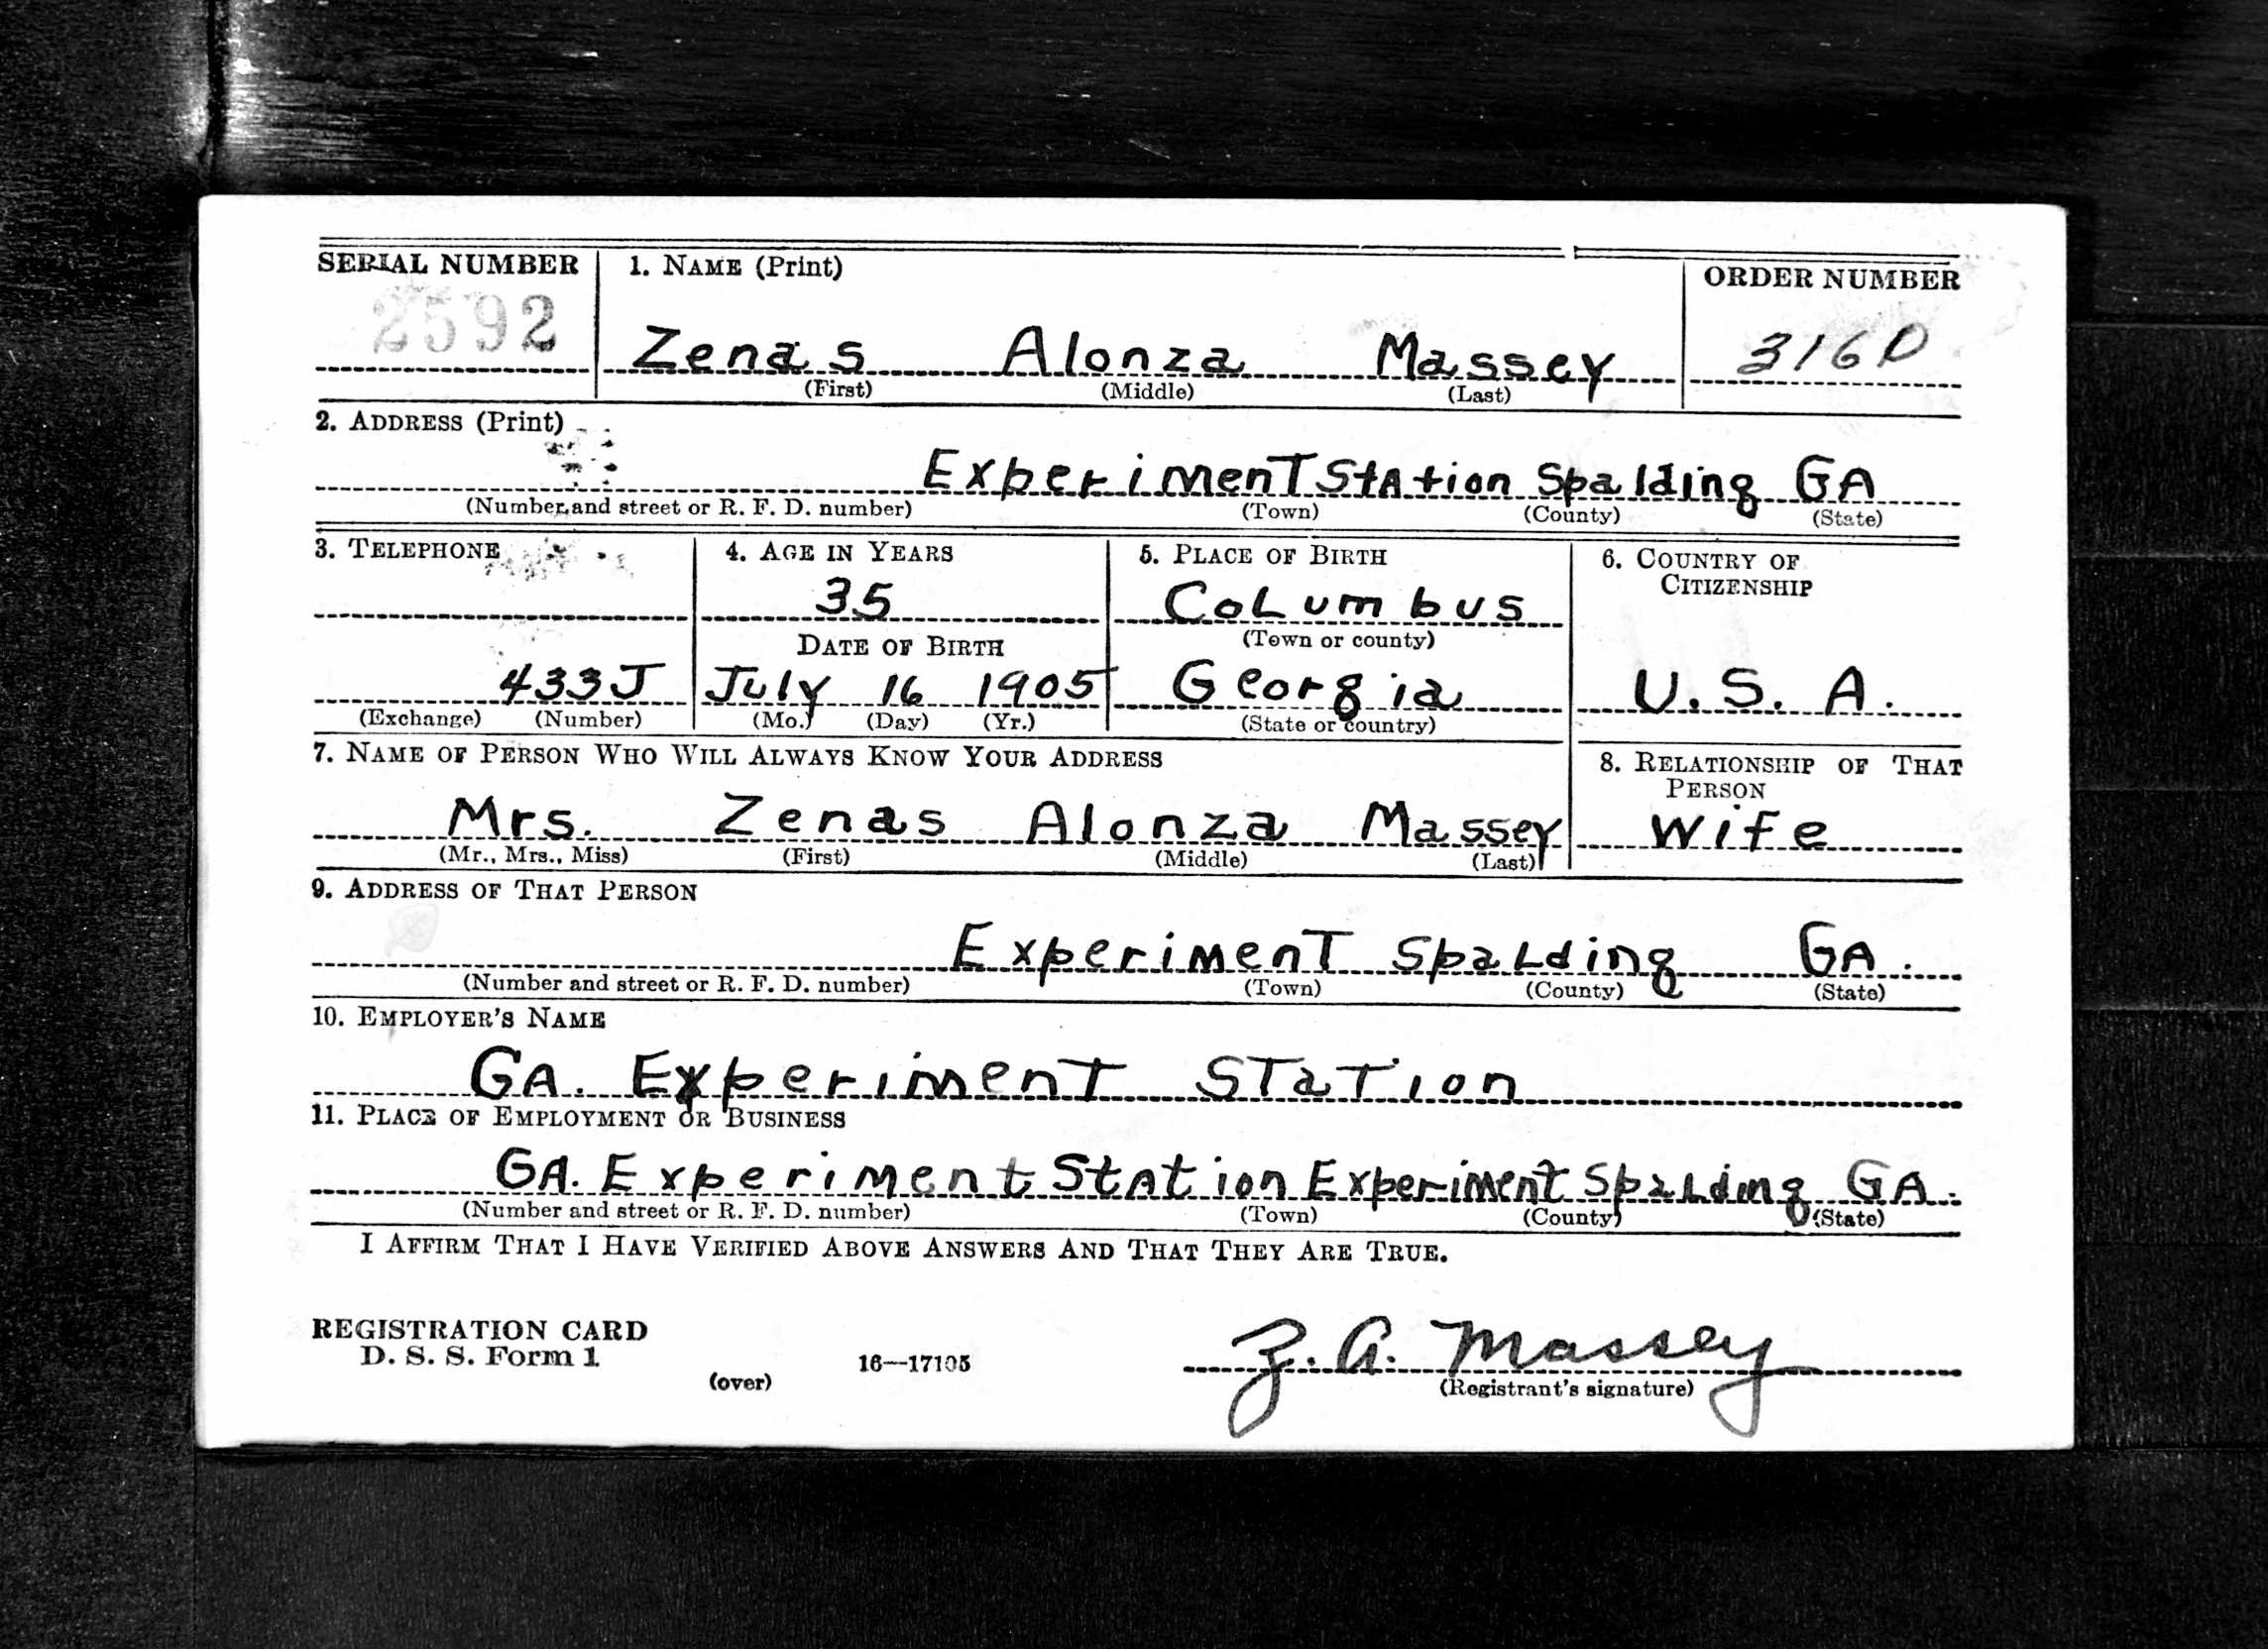 SERIAL NUMBER 1. NAME (Print) ORDER NUMBER
2592 Zenas Alonza Massey 316D
(First) (Middle) (Last)
2. ADDRESS (Print)
Experiment Station Spalding GA
(Number and street or R. F. D. number) (Town) (County) (State)
3. TELEPHONE 4. AGE IN YEARS 5. PLACE OF BIRTH 6. COUNTRY OF
CITIZENSHIP
35 Columbus
DATE OF BIRTH (Town or county)
433J July 16 1905 Georgia U.S.A.
(Exchange) (Number) (Mo.) (Day) (Yr.) (State or country)
7. NAME OF PERSON WHO WILL ALWAYS KNOW YOUR ADDRESS 8. RELATIONSHIP OF THAT
PERSON
Mrs. Zenas Alonza Massey Wife
(Mr., Mrs., Miss) (First) (Middle) (Last)
9. ADDRESS OF THAT PERSON
Experiment Spalding GA.
(Number and street or R. F. D. number) (Town) (County) (State)
10. EMPLOYER'S NAME
GA. Experiment Station
11. PLACE OF EMPLOYMENT OR BUSINESS
GA. Experiment Station Experiment Spalding GA.
(Number and street or R. F. D. number) (Town) (County) (State)
I AFFIRM THAT I HAVE VERIFIED ABOVE ANSWERS AND THAT THEY ARE TRUE.
REGISTRATION CARD
D. S. S. Form 1 16—17105 Z. A. Massey
(over) (Registrant's signature)